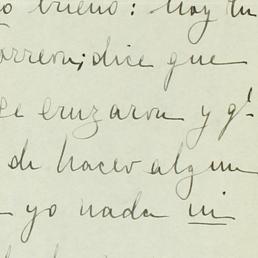 bueno: hoy tu
orreon; dice que
se cruzaron y q!
de hacer algun
yo nada ni